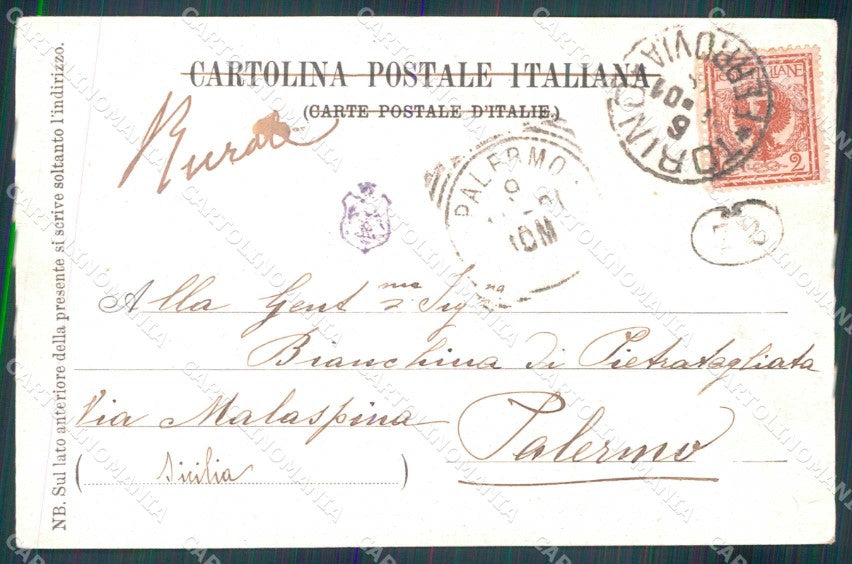 CARTOLINA POSTALE ITALIANA
(CARTE POSTALE D'ITALIE.)
Rurale
TORINO * FERROVIA
6
01
2
PALERMO
9
10M
Alla Gent.ma Sig.na
Bianchina di Pietratagliata
Via Malaspina
Palermo
(Sicilia)
NB. Sul lato anteriore della presente si scrive soltanto l'indirizzo.
CARTOLINOMANIA